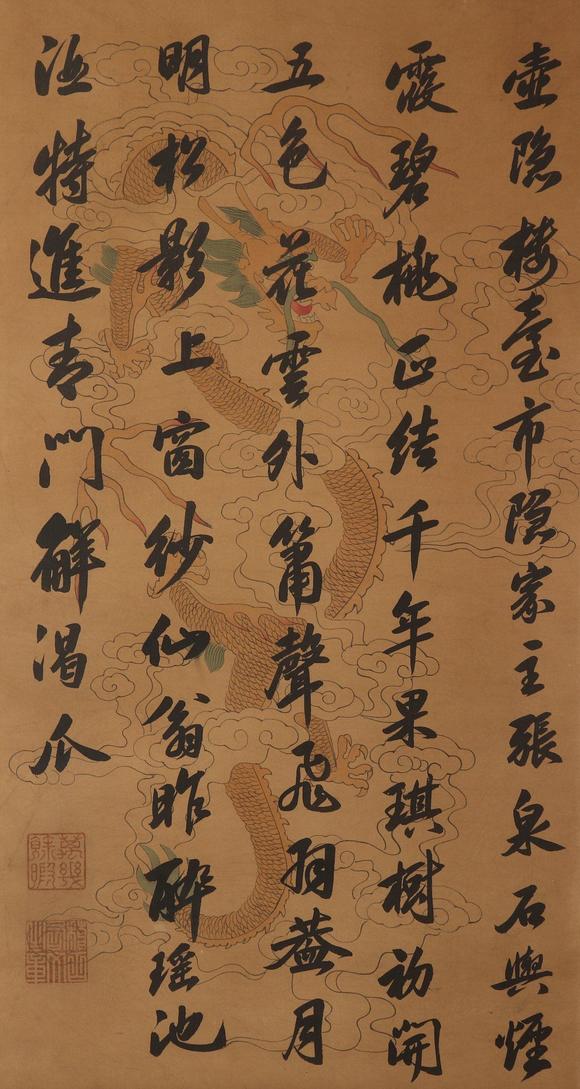 壺隐樓臺市隐家主張泉石與煙
霞碧桃正结千年果琪樹初開
五色花雲外簫聲飛羽葢月
明松影上窗紗仙翁昨醉瑶池
酒特進青門解渴瓜
萬幾餘暇